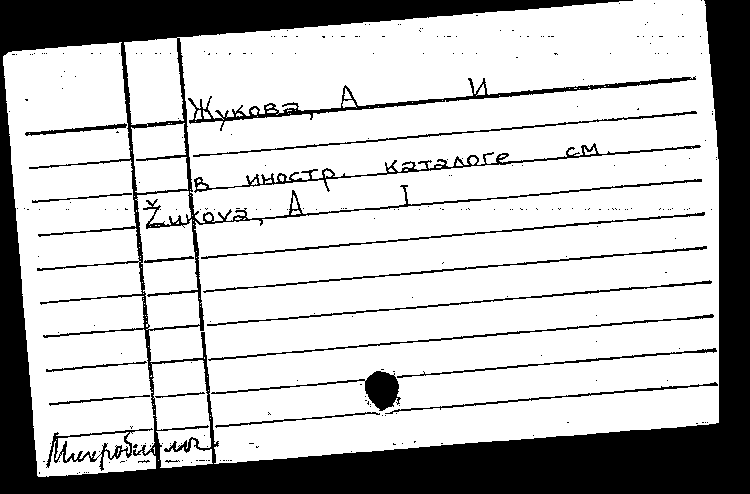 Жукова, А И
в иностр. каталоге см.
Žukova, A I
Микробиолог.